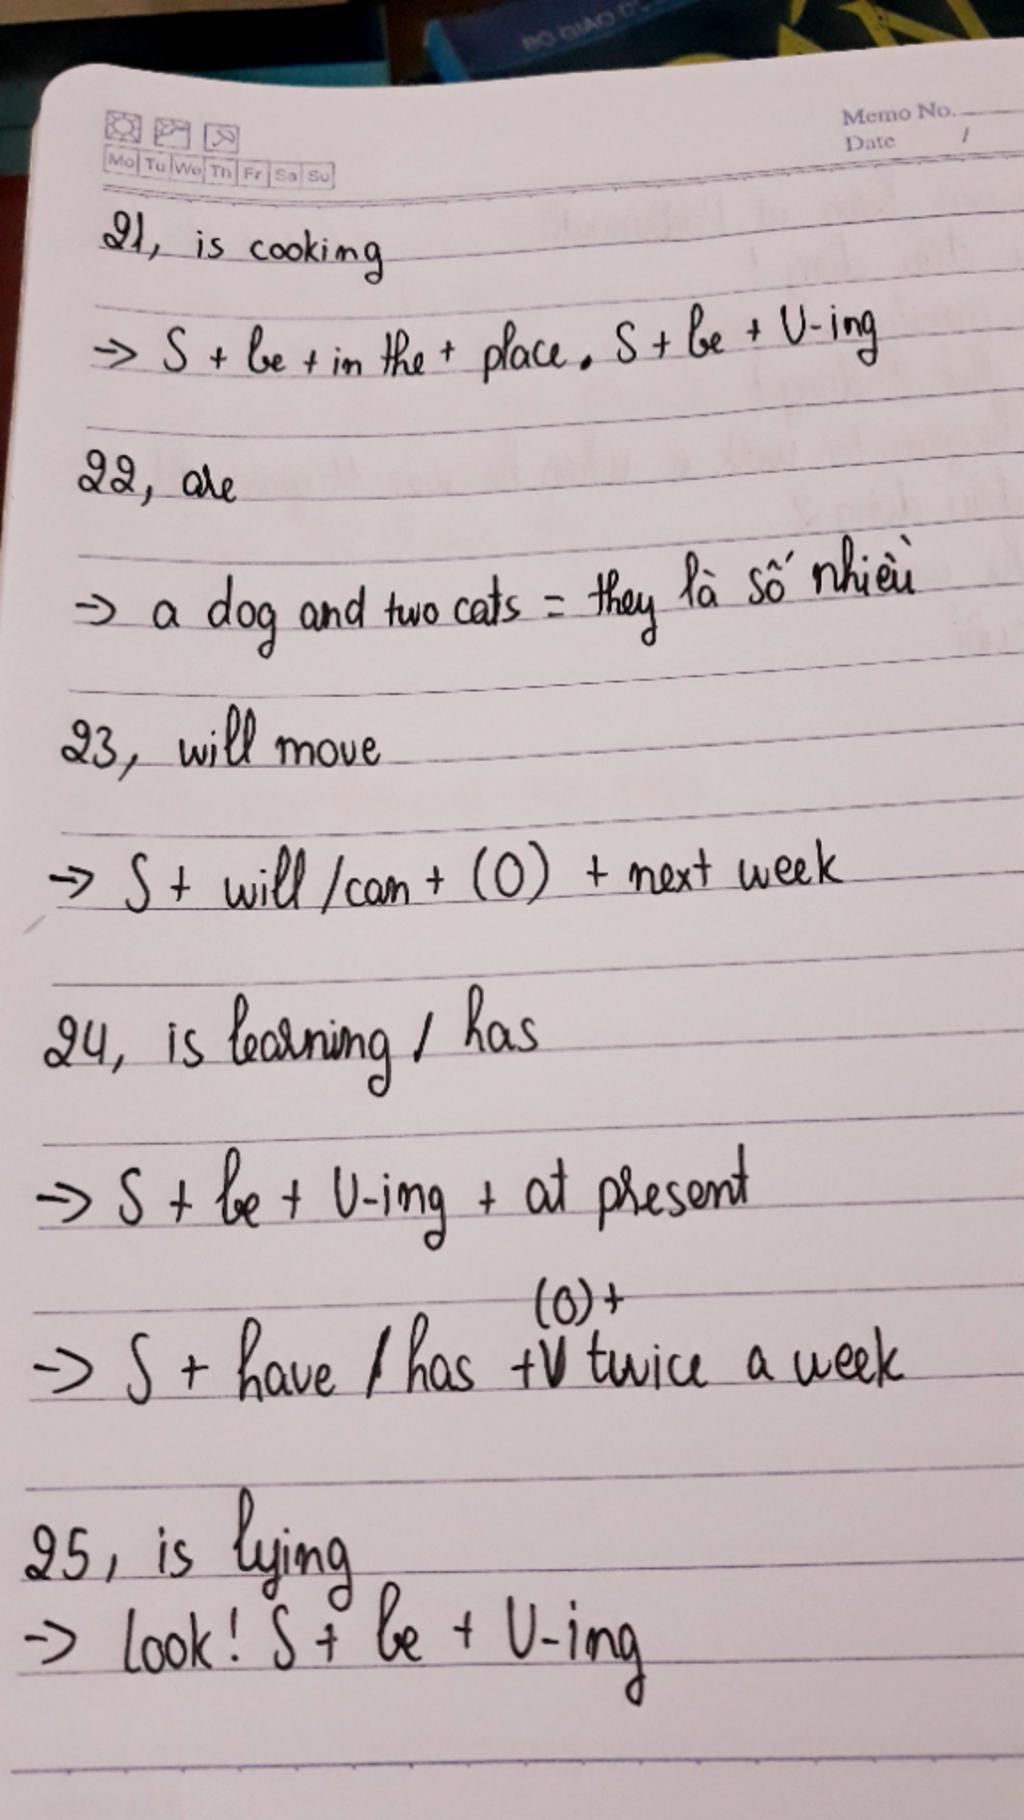 BỘ GIÁO D
Memo No.
Date /
Mo Tu We Th Fr Sa Su
21, is cooking
→ S + be + in the + place. S + be + V-ing
22, are
→ a dog and two cats = they là số nhiều
23, will move
→ S + will /can + (O) + next week
24, is learning / has
→ S + be + V-ing + at present
(O) +
→ S + have / has +V twice a week
25, is lying
→ look! S + be + V-ing